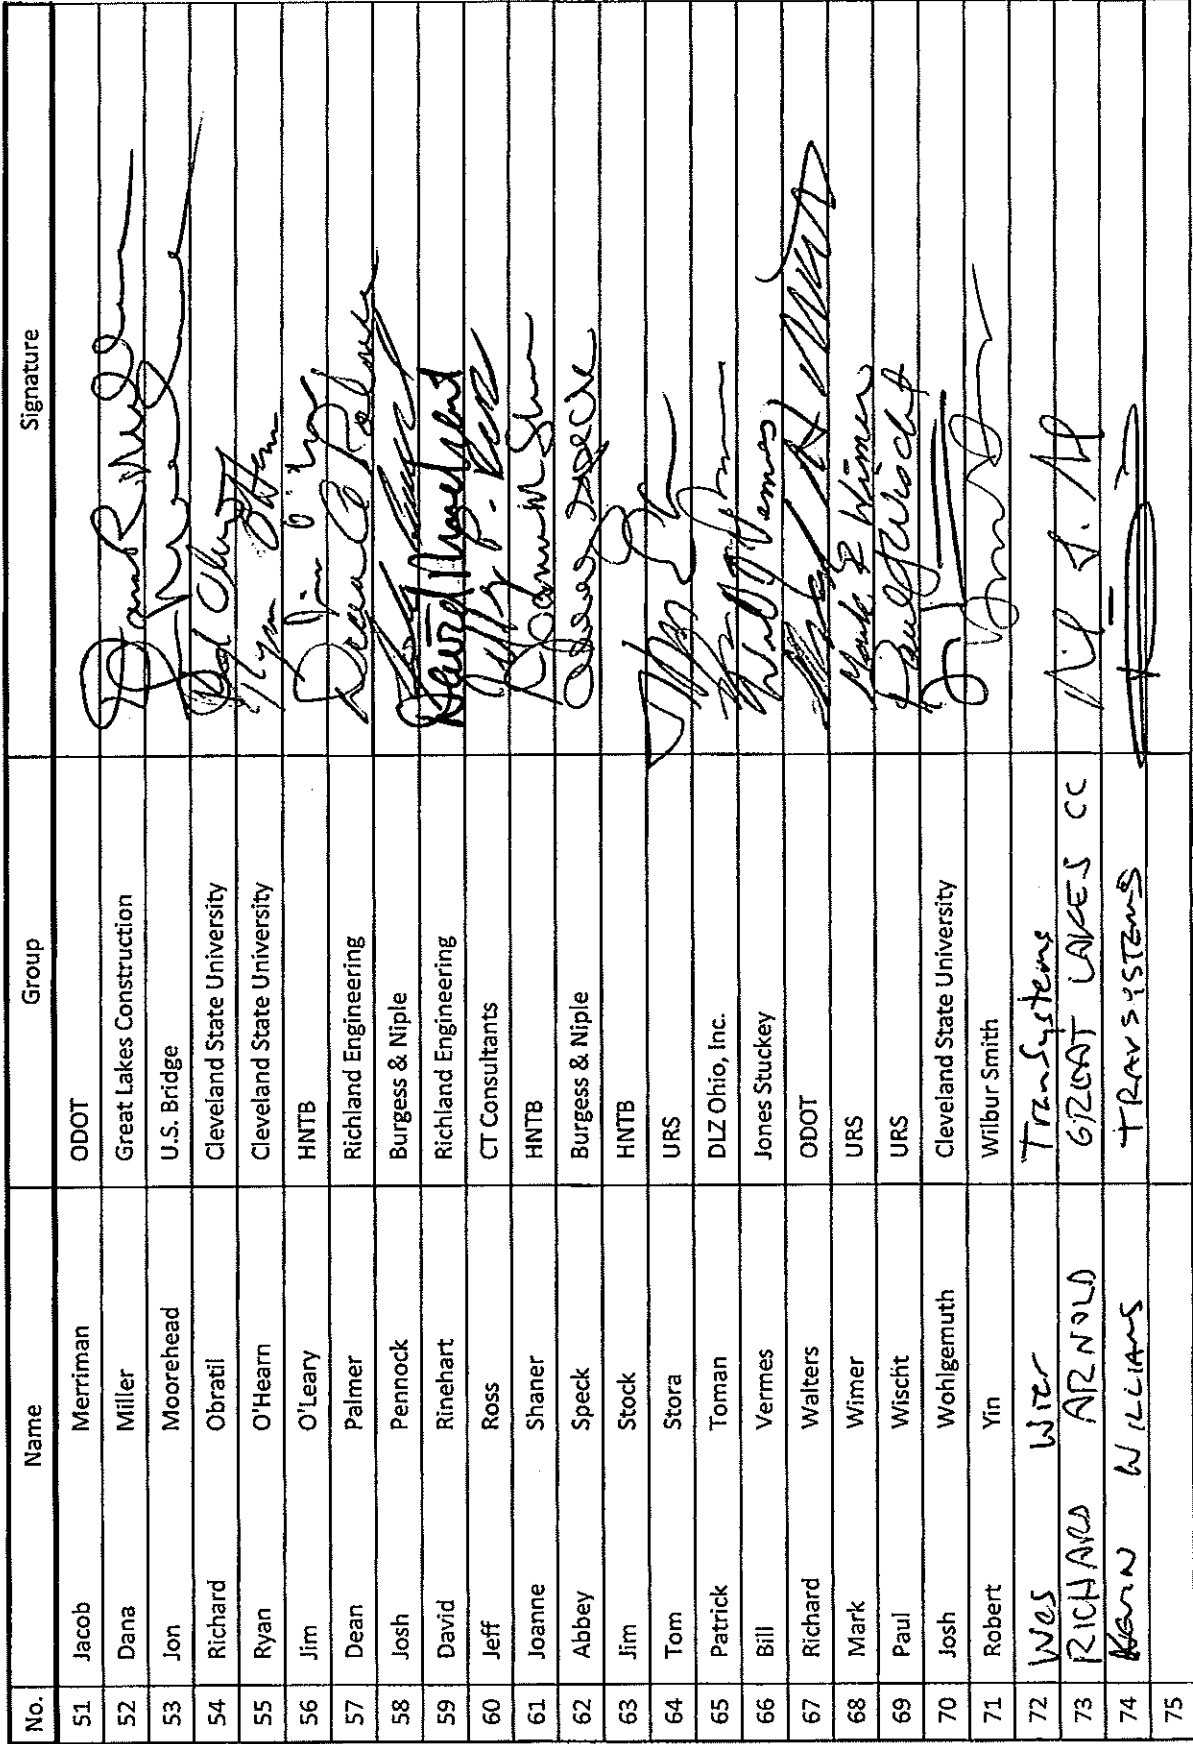 No. Name Group Signature
51 Jacob Merriman ODOT
52 Dana Miller Great Lakes Construction Dana R Miller
53 Jon Moorehead U.S. Bridge
54 Richard Obratil Cleveland State University
55 Ryan O'Hearn Cleveland State University Ryan
56 Jim O'Leary HNTB
57 Dean Palmer Richland Engineering Palmer
58 Josh Pennock Burgess & Niple
59 David Rinehart Richland Engineering David Rinehart
60 Jeff Ross CT Consultants
61 Joanne Shaner HNTB
62 Abbey Speck Burgess & Niple
63 Jim Stock HNTB
64 Tom Stora URS
65 Patrick Toman DLZ Ohio, Inc.
66 Bill Vermes Jones Stuckey Vermes
67 Richard Walters ODOT
68 Mark Wimer URS Mark Wimer
69 Paul Wischt URS Paul Wischt
70 Josh Wohlgemuth Cleveland State University
71 Robert Yin Wilbur Smith
72 Wes Wier TranSystems
73 RICHARD ARNOLD GREAT LAKES CC
74 WILLIAMS TRANSYSTEMS
75